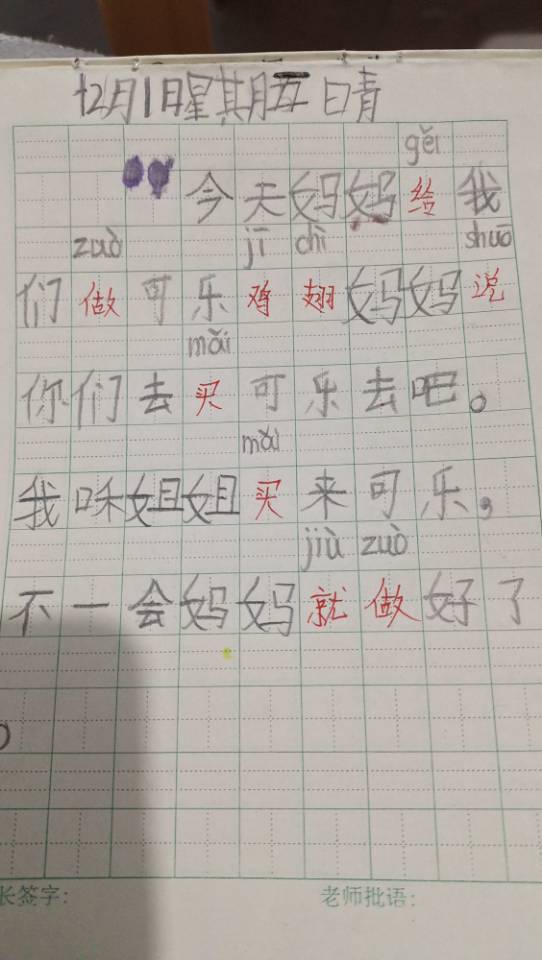 12月1日星期五 日青
gěi
今天妈妈给我
zuò jī chì shuō
们做可乐鸡翅妈妈说
mǎi
你们去买可乐去吧。
mǎi
我咊姐姐买来可乐，
jiù zuò
不一会妈妈就做好了
。
长签字：
老师批语：